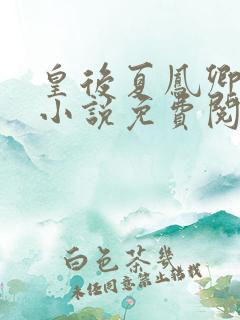 皇後夏鳳卿
小說免費閱
白色茶幾
未經同意禁止轉載